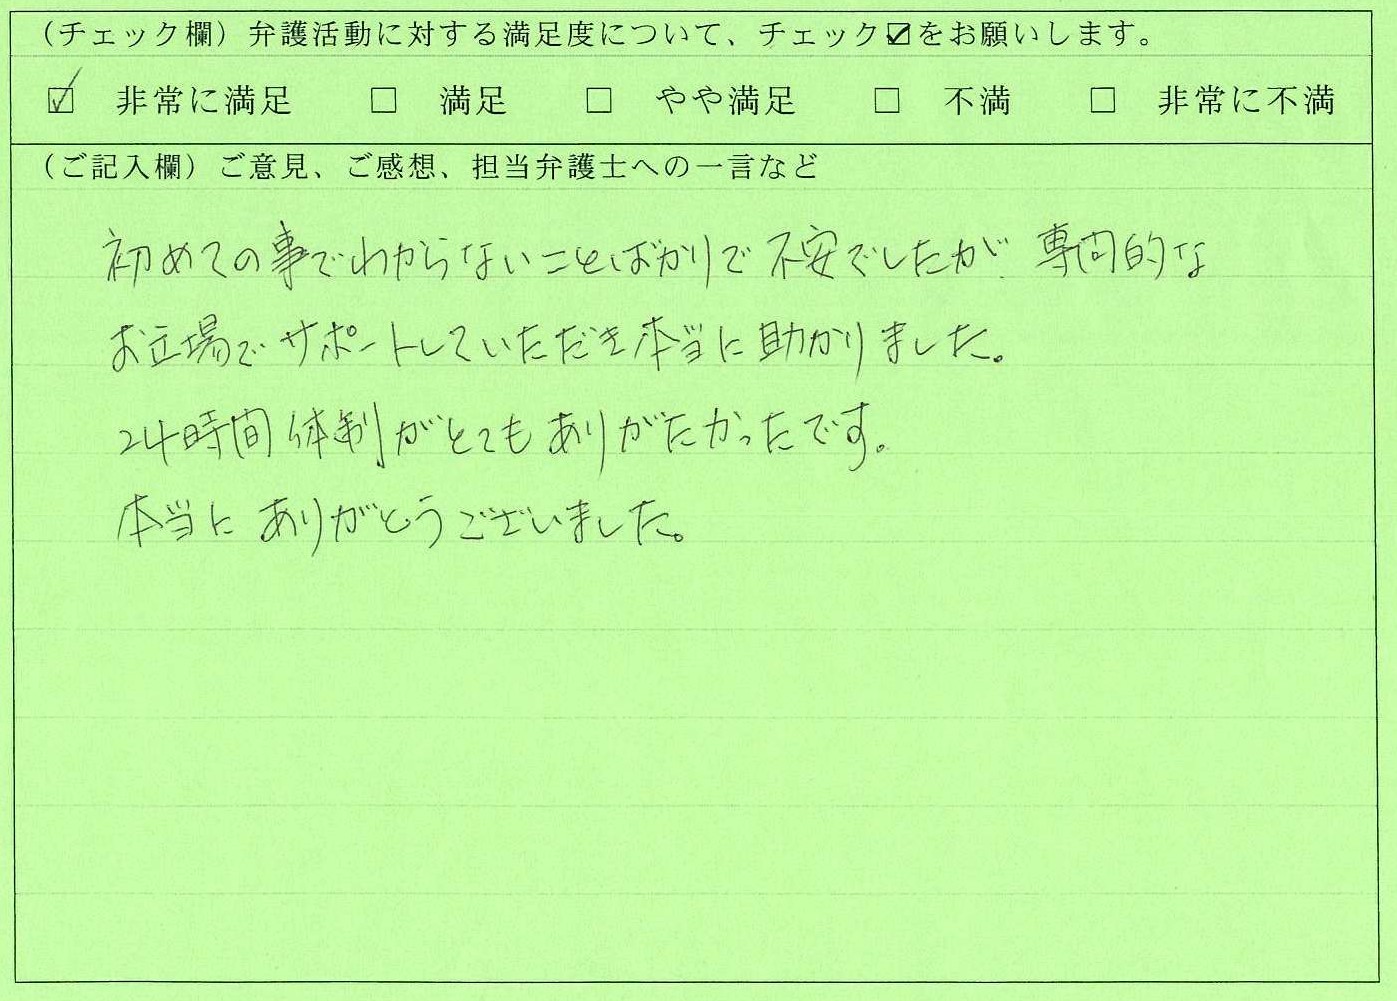 （チェック欄）弁護活動に対する満足度について、チェック☑をお願いします。
☑ 非常に満足 □ 満足 □ やや満足 □ 不満 □ 非常に不満
（ご記入欄）ご意見、ご感想、担当弁護士への一言など
初めての事でわからないことばかりで不安でしたが、専門的な
お立場でサポートしていただき本当に助かりました。
24時間体制がとてもありがたかったです。
本当にありがとうございました。